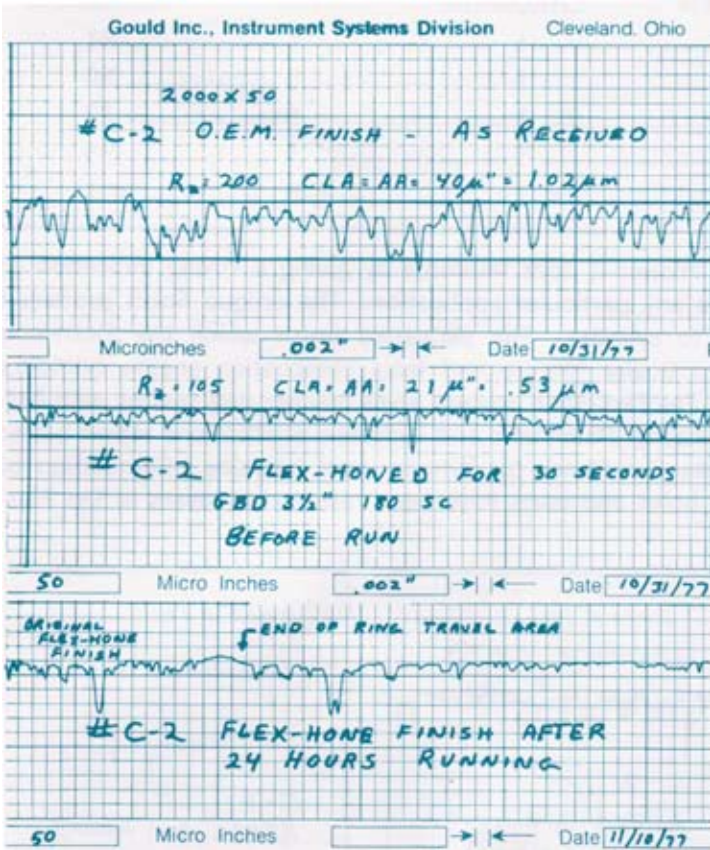 Gould Inc., Instrument Systems Division Cleveland, Ohio
2000 X 50
#C-2 O.E.M. FINISH - AS RECEIVED
Rz = 200 CLA = AA = 40µ" = 1.02µm
Microinches .002" Date 10/31/77
Rz = 105 CLA = AA = 21µ" = .53µm
#C-2 FLEX-HONED FOR 30 SECONDS
GBD 3½" 180 SC
BEFORE RUN
50 Micro Inches .002" Date 10/31/77
ORIGINAL
FLEX-HONE
FINISH
END OF RING TRAVEL AREA
#C-2 FLEX-HONE FINISH AFTER
24 HOURS RUNNING
50 Micro Inches Date 11/10/77